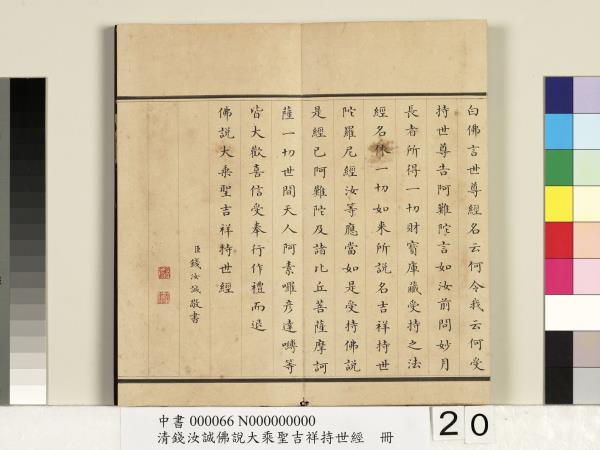 白佛言世尊經名云何令我云何受
持世尊告阿難陀言如汝前問妙月
長者所得一切財寶庫藏受持之法
經名 一切如來所說名吉祥持世
陀羅尼經汝等應當如是受持佛說
是經已阿難陀及諸比丘菩薩摩訶
薩一切世間天人阿素囉彥達嚩等
皆大歡喜信受奉行作禮而退
佛說大乘聖吉祥持世經
臣錢汝誠敬書
中書 000066 N000000000
清錢汝誠佛說大乘聖吉祥持世經 冊
20